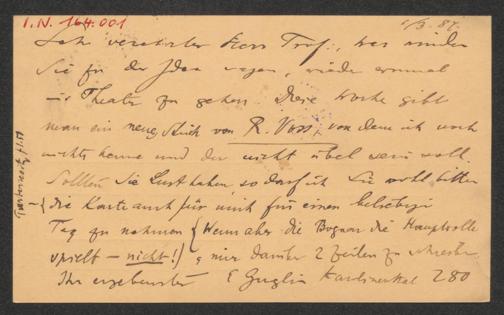 I.N. 164.001
6/3. 87.
Sehr verehrter Herr Prof., was würden
Sie zu der Idee sagen, wieder einmal
ins Theater zu gehen. Diese Woche gibt
man ein neues Stück von R. Voss, von dem ich noch
nichts kenne und der nicht übel sein soll.
Sollten Sie Lust haben, so darf ich Sie wohl bitten
die Karte auch für mich für einen beliebigen
Tag zu nehmen (Wenn aber die Bognar die Hauptrolle
spielt – nicht!) & mir darüber 2 Zeilen zu schreiben
Ihr ergebenster E Guglia 280